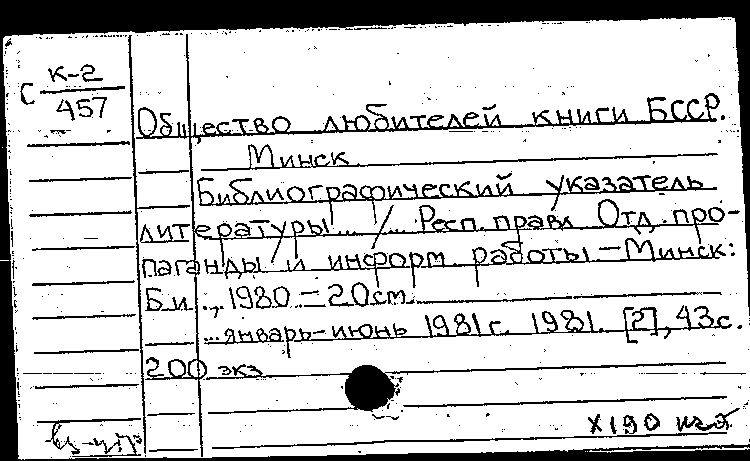 С К-2
457
Общество любителей книги БССР.
Минск
Библиографический указатель
литературы ... / ... Респ. правл Отд. про-
паганды и информ. работы – Минск:
Б.и., 1980 – 20см.
... январь-июнь 1981г. 1981. [2], 43с.
200 экз
X190